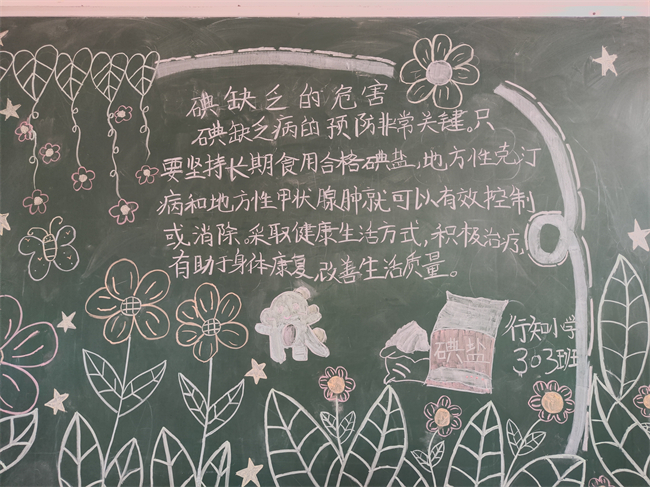 碘缺乏的危害
碘缺乏病的预防非常关键。只
要坚持长期食用合格碘盐,地方性克汀
病和地方性甲状腺肿就可以有效控制
或消除。采取健康生活方式,积极治疗,
有助于身体康复,改善生活质量。
碘盐
行知小学
303班